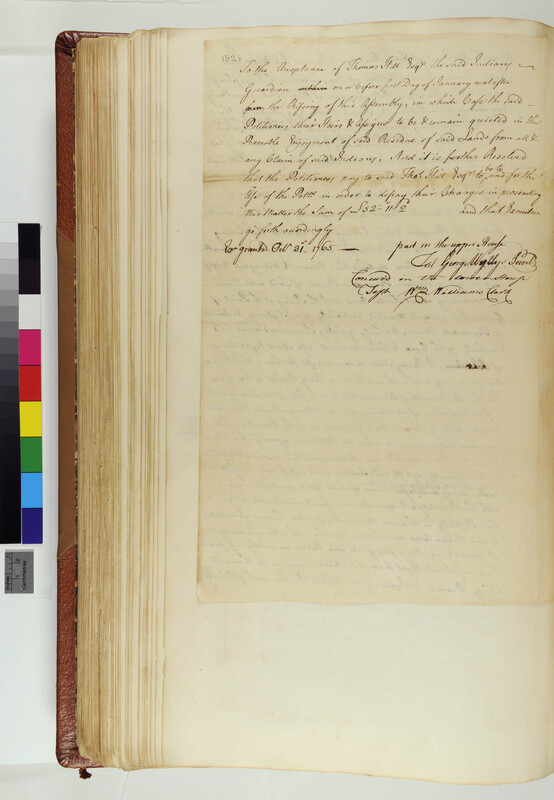 152b
To the Acceptance of Thomas Hill Esqr. the said Indians
Guardian on or before first Day of January next after
the Rising of this Assembly, in which Case the said
Petitioners their Heirs & Assigns to be & remain quieted in the
Peaceable Enjoyment of said Residue of said Lands from all &
any Claim of said Indians, And it is further Resolved
that the Petitioners pay to said Thos. Hill Esqr. to be to and for the
Use of the in order to defray their Charges in prosecuting
this Matter the Sum of £32-11- and that Execution
go forth accordingly
Ex granted 31st 1765 — past in the upper House
Test George Wyllys Secrety
Concurd in the lower House
Test Wm Williams Clerk
Centimetres